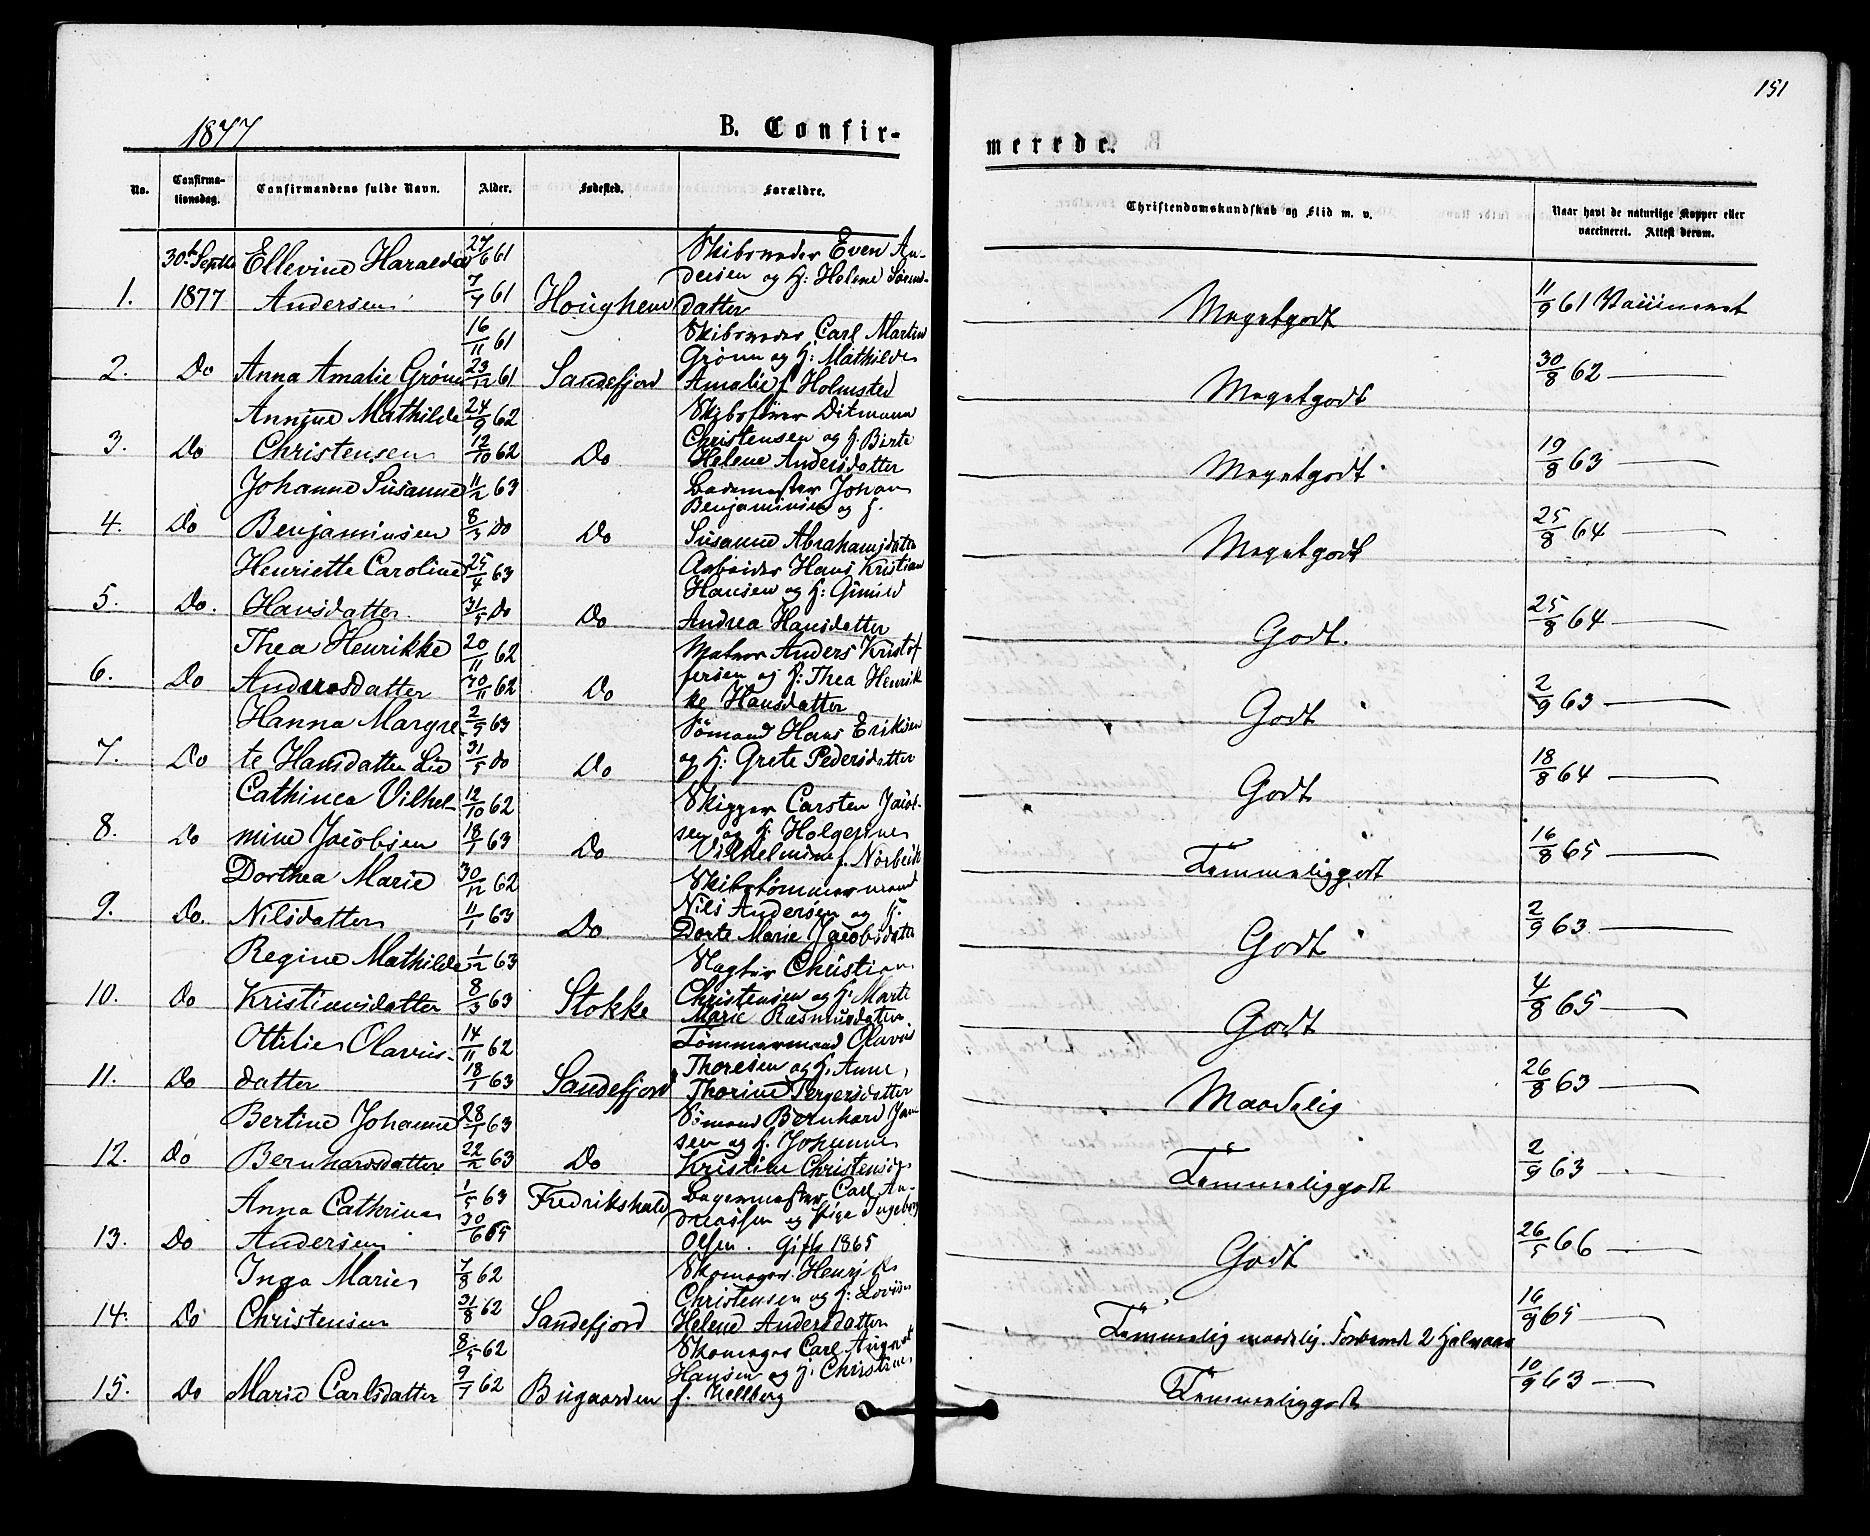 151
1877
B. Confir-
merede.
No.
Confirma-
tionsdag.
Confirmandens fulde Navn.
Alder.
Fødested.
Forældre.
Christendomskundskab og Flid m. v.
Naar havt de naturlige Kopper eller
vaccineret. Attest derom.
30te Septbr Ellevine Haralda 27/6 61 Skibsreder Even An-
dersen og H: Helene Sørens-
1. 1877 Andersen 7/7 61 datter Megetgodt 11/9 61
16/11 61 Skibsreder Carl Martin
Grønn og H: Mathilde
2. Do Anna Amalie Grønn 23/12 61 Sandefjord Amalie f. Holmsted Megetgodt 30/8 62 —
Annine Mathilde 24/9 62 Skibsfører Ditmann
Christensen og H. Birte
3. Do Christensen 12/10 62 Do Helene Andersdatter Megetgodt 19/8 63 —
Johanne Susanne 11/2 63 Bademester Johan
Benjaminsen og H.
4. Do Benjaminsen 8/3 Do Do Susanne Abrahamsdatter Megetgodt 25/8 64 —
Henriette Caroline 25/4 63 Arbeider Hans Kristian
Hansen og H: Gunild
5. Do. Hansdatter. 31/5 Do Do Andrea Hansdatter Godt. 25/8 64 —
Thea Henrikke 20/11 62 Matros Anders Kristof
fersen og H: Thea Henrik
6. Do Andersdatter 30/11 62 Do ke Hansdatter Godt 2/9 63 —
Hanna Margre- 2/9 63 Sømand Hans Eriksen
7. Do te Hansdatter Lie 31/5 Do Do og H: Grete Pedersdatter Godt 18/8 64 —
Cathinca Vilhel- 12/10 62 Skipper Carsten Jacob-
sen og H. Holgerine
8. Do mine Jacobsen 18/1 63 Do Vilhelmine f. Temmeliggodt 16/8 65 —
Dorthea Marie 30/12 62 Skibstømmermand
Nils Andersen og H.
9. Do. Nilsdatter 11/1 63 Do Dorte Marie Jacobsdatter Godt 2/9 63 —
Regine Mathilde 1/2 63 Slagter Christian
Christensen og H: Marte
10. Do Kristiansdatter 8/3 63 Stokke Marie Rasmusdatter Godt 4/8 65 —
Ottilie Olavus- 14/11 62 Tømmermand Olavus
Thoresen og H. Anne
11. Do datter 18/1 63 Sandefjord Thorine Torgersdatter Maadelig 26/8 63 —
Bertine Johanne 28/1 63 Sømand Bernhard Jan
sen og H. Johanne
12. Do Bernhardsdatter 22/2 63 Do Kristine Temmeliggodt 2/9 63 —
Anna Cathrine 1/5 63 Fredrikshald Bagermester Carl An-
dreassen og Pige Ingeborg
13. Do Andersen 30/6 65 Olsen. Gift 1865 Godt 26/5 66 —
Inga Marie 7/8 62 Skomager Henrik
Christensen og H: Lovise
14. Do Christensen 31/8 62 Sandefjord Helene Andersdatter Temmelig maadelig. 16/9 65 —
8/5 62 Skomager Carl August
Hansen og H. Christine
15. Do Marie Carlsdatter 9/7 62 Bugaarden f. Hellberg Temmeliggodt 10/9 63 —